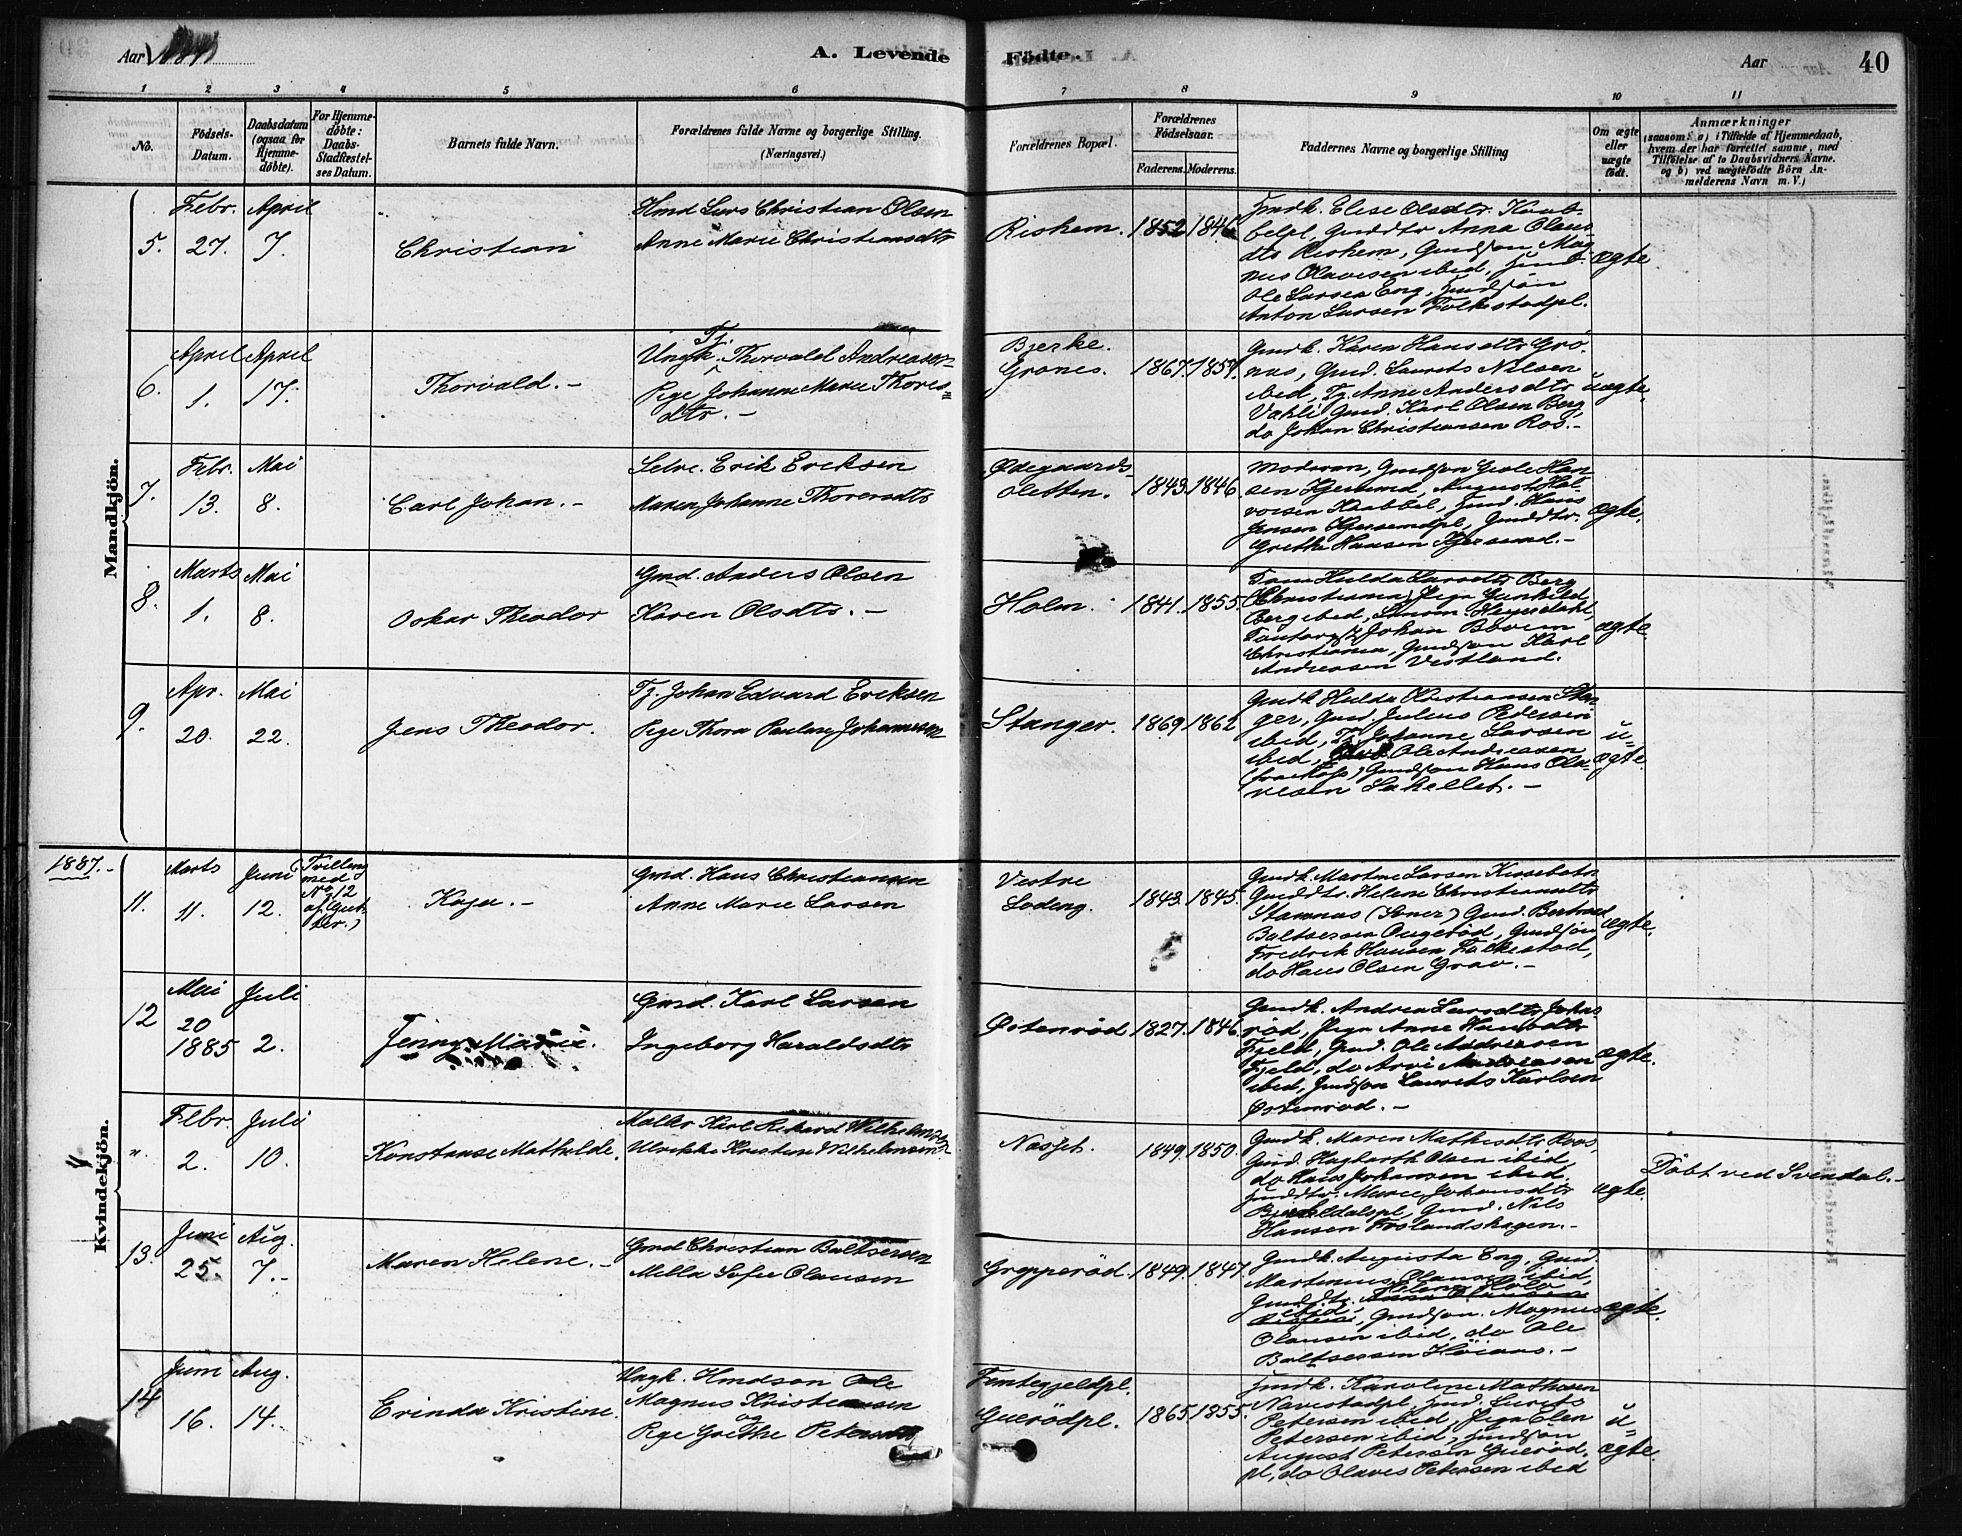 Aar 1887
A. Levende
Födte.
Aar
40
1 2 3 4 5 6 7 8 9 10 11
No.
Födsels-
Datum.
Daabsdatum
(ogsaa for
Hjemme-
døbte).
For Hjemme-
døbte:
Daabs-
Stadfæstel-
ses Datum.
Barnets fulde Navn.
Forældrenes fulde Navne og borgerlige Stilling.
(Næringsvei.)
Forældrenes Bopæl.
Forældrenes
Födselsaar.
Faderens. Moderens.
Faddernes Navne og borgerlige Stilling
Om ægte
eller
uægte
födt.
Anmærkninger
(saasom: a) i Tilfælde af Hjemmedaab,
hvem der har forrettet samme, med
Tilföielse af to Daabsvidners Navne.
og b) ved uægtefödte Börn An-
melderens Navn m. V.)
Mandkjön.
5.
Febr.
27.
April
7.
Christian
Hmd Lars Christian Olsen
Anne Marie Christiansdtr
Rishem.
1852 1846
Hmdk. Elise Olsdtr. Kaab-
belpl, Gmddtr Anna Olaus-
dtr Rishem, Gmdsøn Mag-
nus Olavesen ibid, Hmd.
Ole Larsen Eng, Hmdsøn
Anton Larsen Folkestadpl.
ægte
6.
April
1.
April
17.
Thorvald. -
Ungk. Tj. Thorvald Andreasen
Pige Johanne Marie Thores-
dtr. -
Bjerke.
Grønes.
1867. 1859.
Gmdk. Karen Hansdtr Grø-
nas, Gmd. Laurits Nilsen
ibid, Tj. Anne Andersdtr
Vahli, Gmd. Karl Olsen Berg,
do Johan Christiansen Ros. -
uægte.
7.
Febr.
13.
Mai
8.
Carl Johan. -
Selve. Erik Eriksen
Maren Johanne Thorersdtr
Ødegaards-
sletten.
1843. 1846.
Moderen, Gmdsøn Hans
Jensen Kjersemdpl, Gmddtr.
Grethe Hansen Kjersemd. -
ægte.
8.
Marts
1.
Mai
8.
Oskar Theodor
Gmd. Anders Olsen
Karen Olsdtr. -
Holm.
1841. 1855.
Hulda Larsdtr Berg
Christiania, Pige
Berg ibid, Heyerdahl,
Johan
Christiania, Gmdsøn Karl
Andreasen Vestland.
ægte
9.
Apr.
20.
Mai
22.
Jens Theodor.
Tj. Johan Edvard Eriksen
Pige Thora Pauline Johannesen
Stanger.
1869. 1862
Gmdk Hulda Christiansen Stan-
ger, Gmd. Julius Pedersen
ibid, Tj. Johanne Larsen
ibid, Ole Andreasen
Gmdsøn Hans Ola-
vesen Sahellet. -
u-
ægte.
1887. -
Kvindekjön.
11.
Marts
11.
Juni
12.
(Tvilling
med
No 12
af Gut-
ter.)
Kaja. -
Gmd. Hans Christiansen
Anne Marie Larsen
Vestre
Lodeng.
1843. 1845.
Gmdk. Martine Larsen
Gmddtr. Helene Christiansdtr
Gmd. Bertrand
Baltsersen Augerød, Gmdsøn
Fredrik Hansen Folkestad,
do Hans Olsen Grav. -
ægte.
12
Mai
20
1885
Juli
2.
Jenny Marie.
Gmd. Karl Larsen
Ingeborg Haraldsdtr
Østenrød
1827. 1846.
Gmdk. Andrea Larsdtr Johns-
rød, Pige Anne Hansdtr
Fjeld, Gmd. Ole Andersen
Fjeld, do Arvi Andersen
ibid, Gmdsøn Laurits Karlsen
Østenrød. -
ægte.
".
Febr.
2.
Juli
10.
Konstanse Mathilde.
Maler Karl Rikard Wilhelmsen
Ulrikke Kristine Wilhelmsen
Nasjet.
1849. 1850.
Gmdk. Maren Mathisdtr Roos,
Gmd. Hagbarth Olsen ibid,
do Hans Johansen ibid,
Hmddtr. Marie Johansdtr
Gmd. Nils
Hansen Froslandshagen. -
ægte.
Døbt ved Svindal. -
13.
Juni
25.
Aug.
7. -
Maren Helene. -
Gmd Christian Baltsersen
Mella Sofie Olausen
Gropperød.
1849. 1847.
Gmdk. Augusta Eng, Gmd.
Martinius Olausen ibid,
Gmddtr.
ibid, Gmdsøn. Magnus
Olausen ibid, do Ole
Baltsersen Høiaas. -
ægte.
14
Juni
16.
Aug.
14.
Erinda Kristine.
Ungk. Hmdsøn Ole
Magnus Kristiansen
og
Pige Grethe Petersen
Femtegjeldpl.
Guerødpl.
1865. 1855.
Hmdk. Karoline Mathisen
Navestadpl, Hmd. Laurits
Petersen ibid, Pige Elen
Petersen ibid, Hmdsøn
August Petersen Guerød-
pl, do Olaves Petersen ibid
u-
ægte.